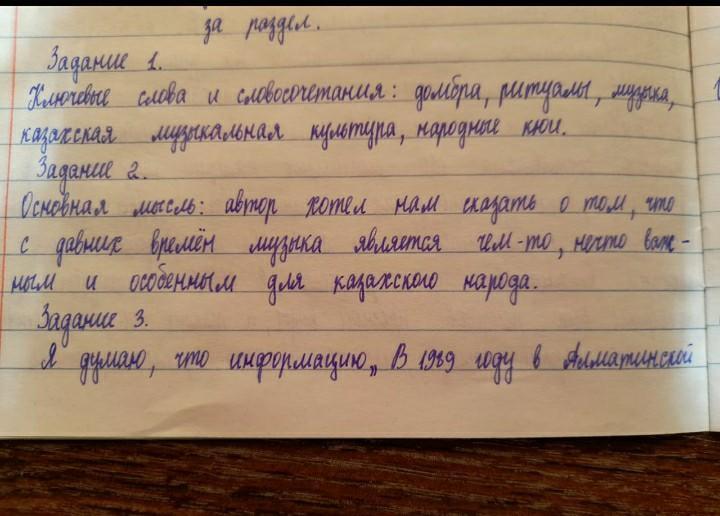 за раздел.
Задание 1.
Ключевые слова и словосочетания: домбра, ритуалы, музыка,
казахская музыкальная культура, народные кюи.
Задание 2.
Основная мысль: автор хотел нам сказать о том, что
с давних времён музыка является чем-то, нечто важ-
ным и особенным для казахского народа.
Задание 3.
Я думаю, что информацию „ В 1989 году в Алматинской